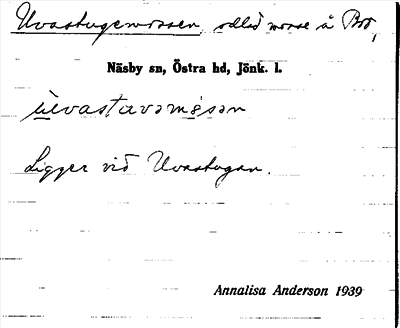 Uvastugemossen, odlad mosse å Bo,
Näsby sn, Östra hd, Jönk. l.
Ligger vid Uvastugan.
Annalisa Anderson 1939